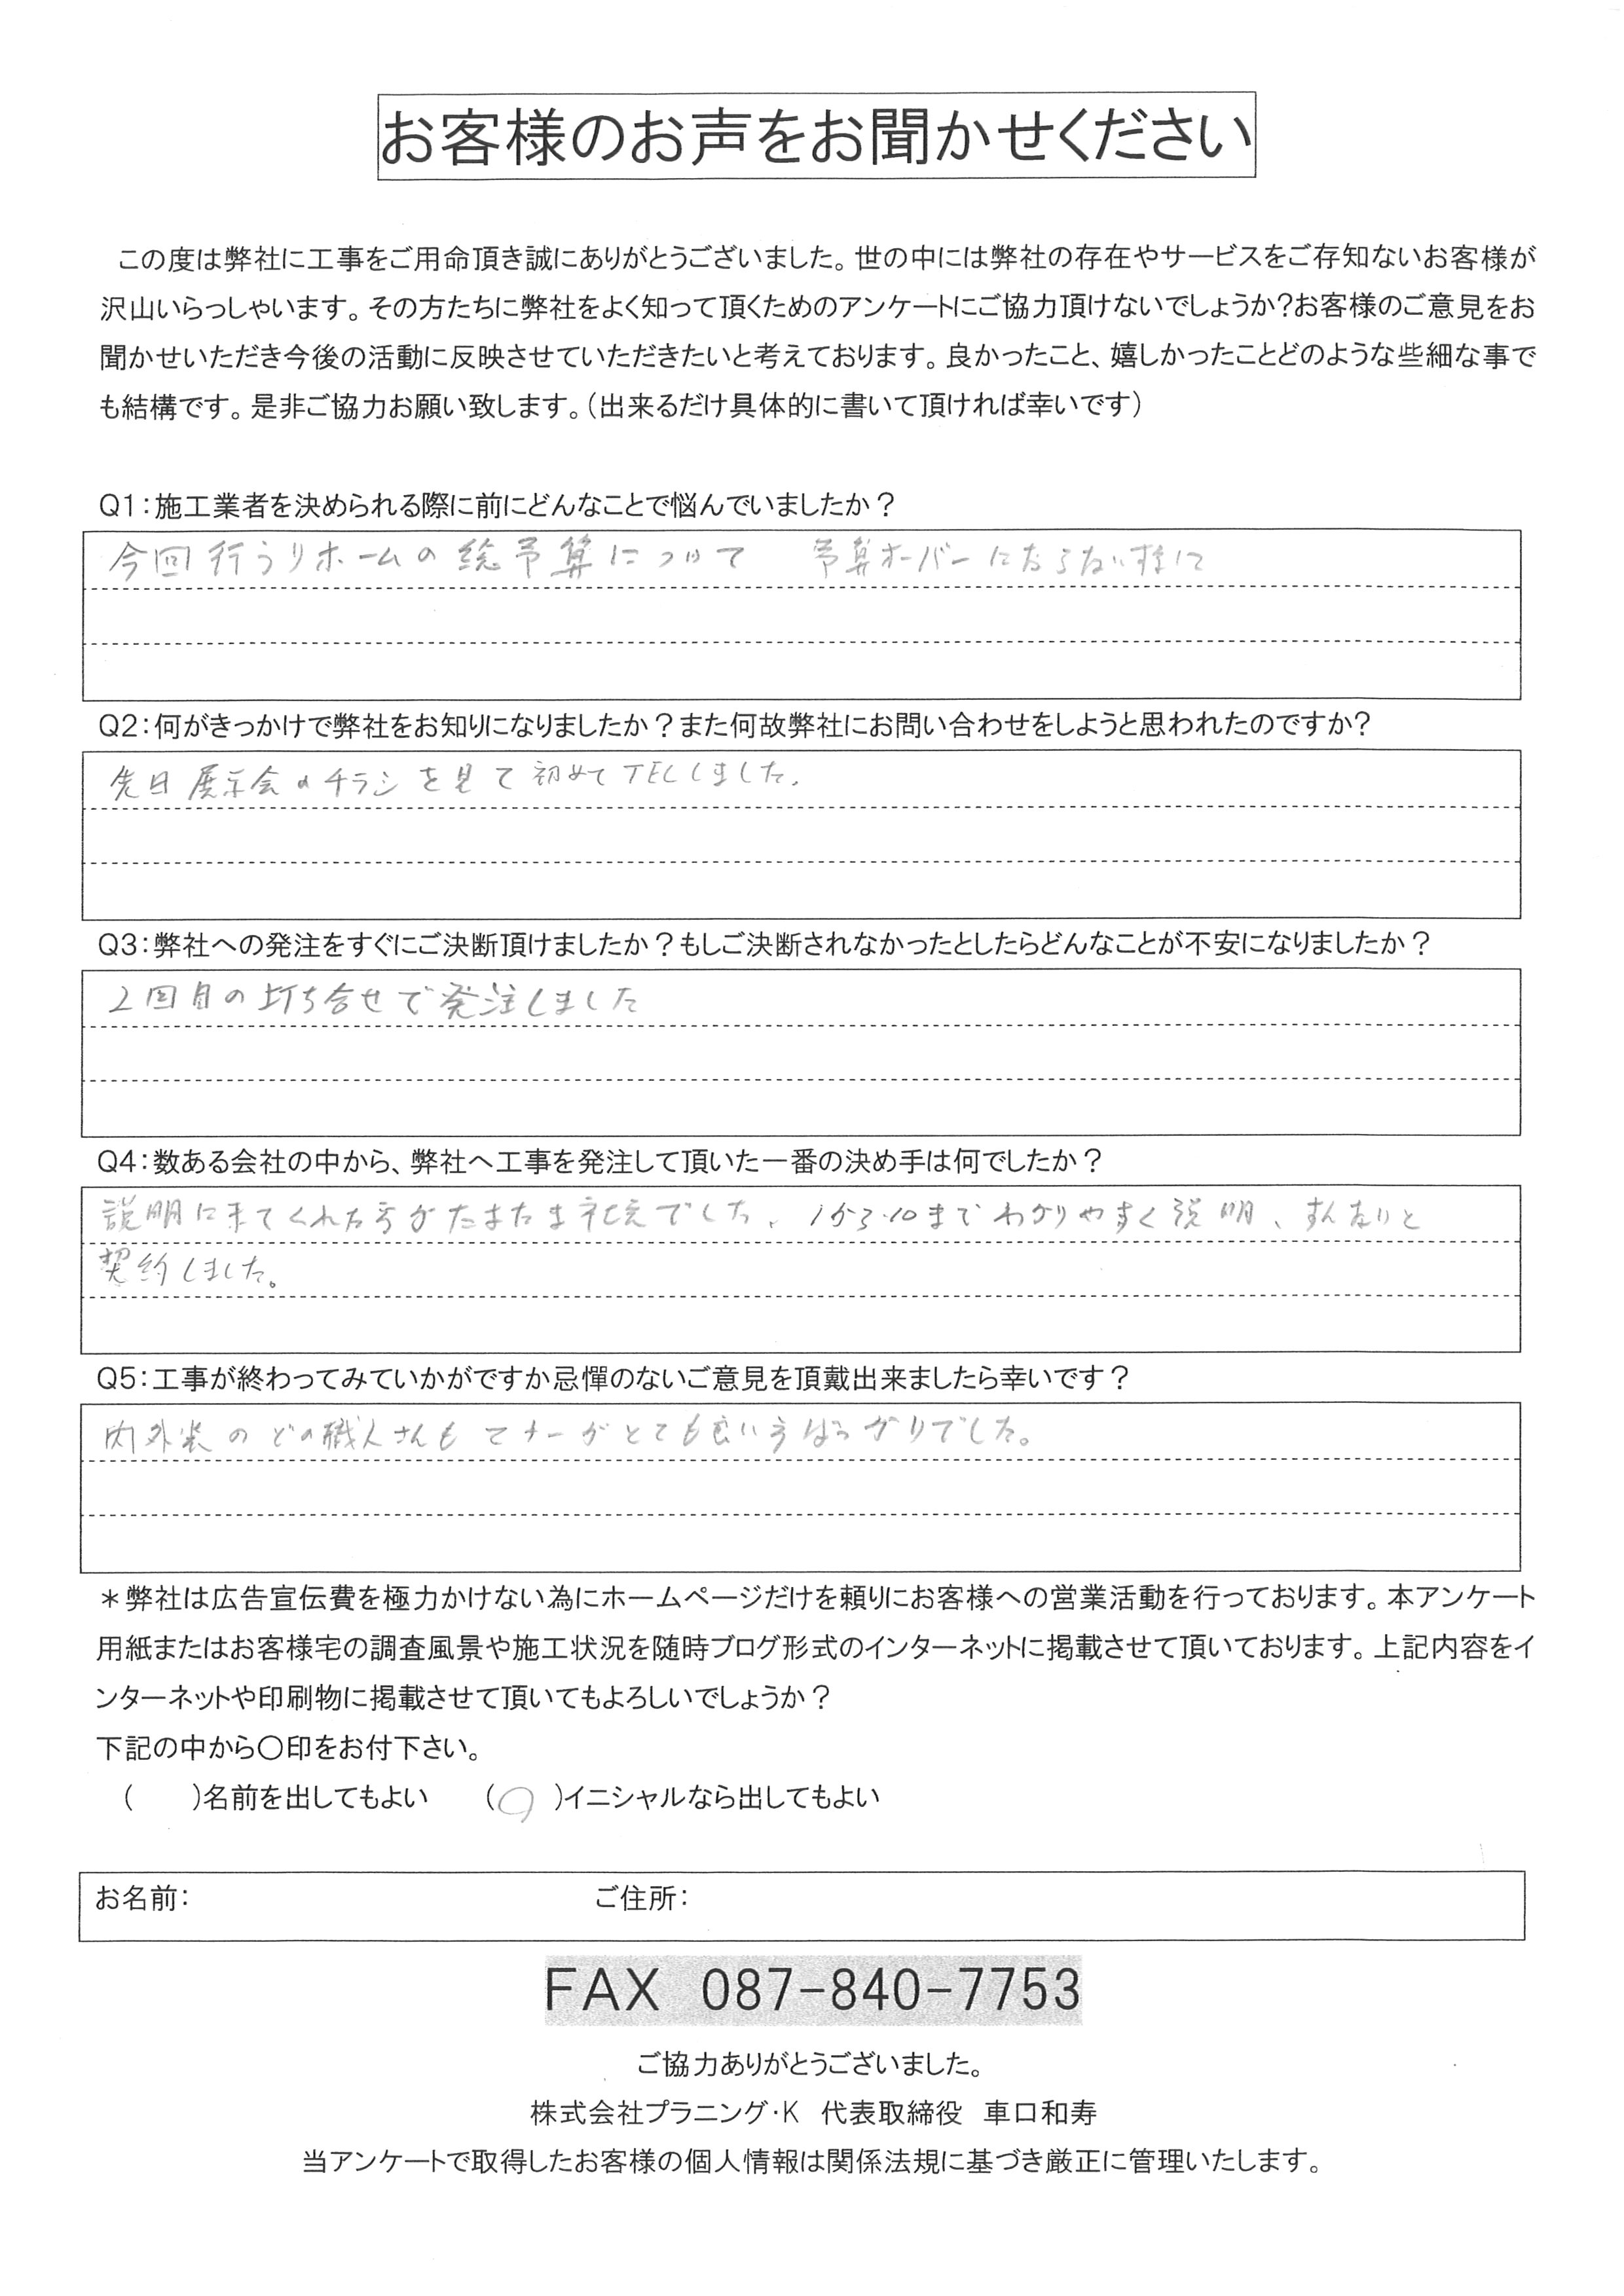 お客様のお声をお聞かせください
この度は弊社に工事をご用命頂き誠にありがとうございました。世の中には弊社の存在やサービスをご存知ないお客様が
沢山いらっしゃいます。その方たちに弊社をよく知って頂くためのアンケートにご協力頂けないでしょうか?お客様のご意見をお
聞かせいただき今後の活動に反映させていただきたいと考えております。良かったこと、嬉しかったことどのような些細な事で
も結構です。是非ご協力お願い致します。(出来るだけ具体的に書いて頂ければ幸いです)
Q1:施工業者を決められる際に前にどんなことで悩んでいましたか?
今回行うリホームの総予算について 予算オーバーにならない様に
Q2:何がきっかけで弊社をお知りになりましたか?また何故弊社にお問い合わせをしようと思われたのですか?
先日展示会のチラシを見て初めてTELしました。
Q3:弊社への発注をすぐにご決断頂けましたか?もしご決断されなかったとしたらどんなことが不安になりましたか?
2回目の打ち合せで発注しました
Q4:数ある会社の中から、弊社へ工事を発注して頂いた一番の決め手は何でしたか?
説明に来てくれた方がたまたま社長でした、1から10までわかりやすく説明、すんなりと
契約しました。
Q5:工事が終わってみていかがですか忌憚のないご意見を頂戴出来ましたら幸いです?
内外装のどの職人さんもマナーがとても良い方ばっかりでした。
*弊社は広告宣伝費を極力かけない為にホームページだけを頼りにお客様への営業活動を行っております。本アンケート
用紙またはお客様宅の調査風景や施工状況を随時ブログ形式のインターネットに掲載させて頂いております。上記内容をイ
ンターネットや印刷物に掲載させて頂いてもよろしいでしょうか?
下記の中から〇印をお付下さい。
( )名前を出してもよい (〇)イニシャルなら出してもよい
お名前: ご住所:
FAX 087-840-7753
ご協力ありがとうございました。
株式会社プラニング・K 代表取締役 車口和寿
当アンケートで取得したお客様の個人情報は関係法規に基づき厳正に管理いたします。